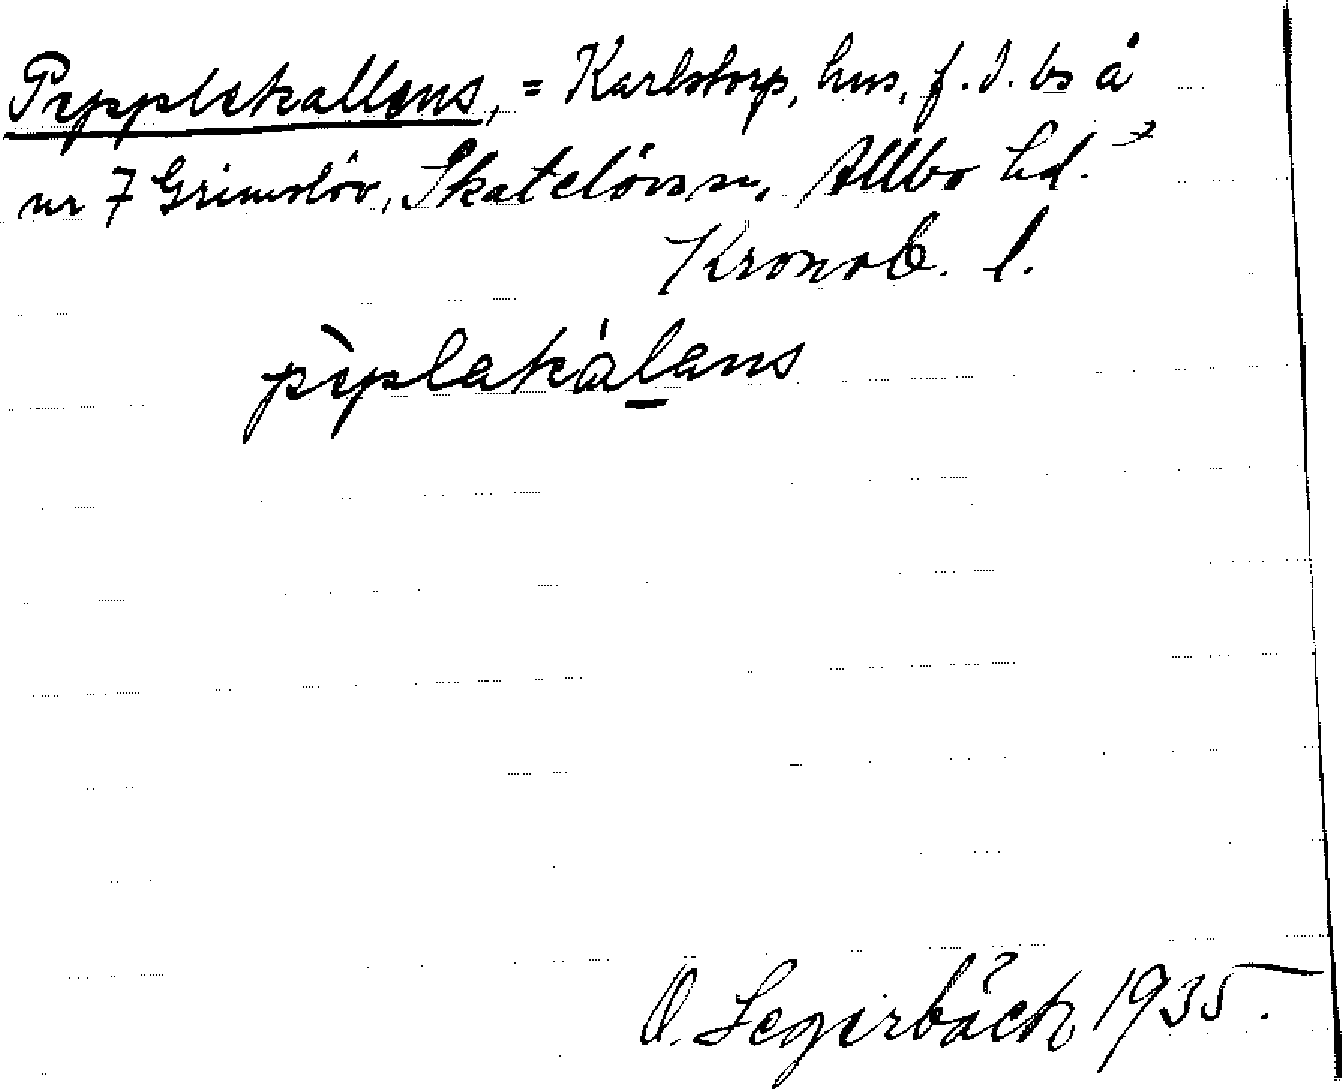 Pepplekallens, = Karlstorp, hus, f.d. bs å
nr 7 Grimslöv, Skatelövs sn, Allbo hd.
Kronob. l.
pèplakálans
O. Segerbäck 1935.